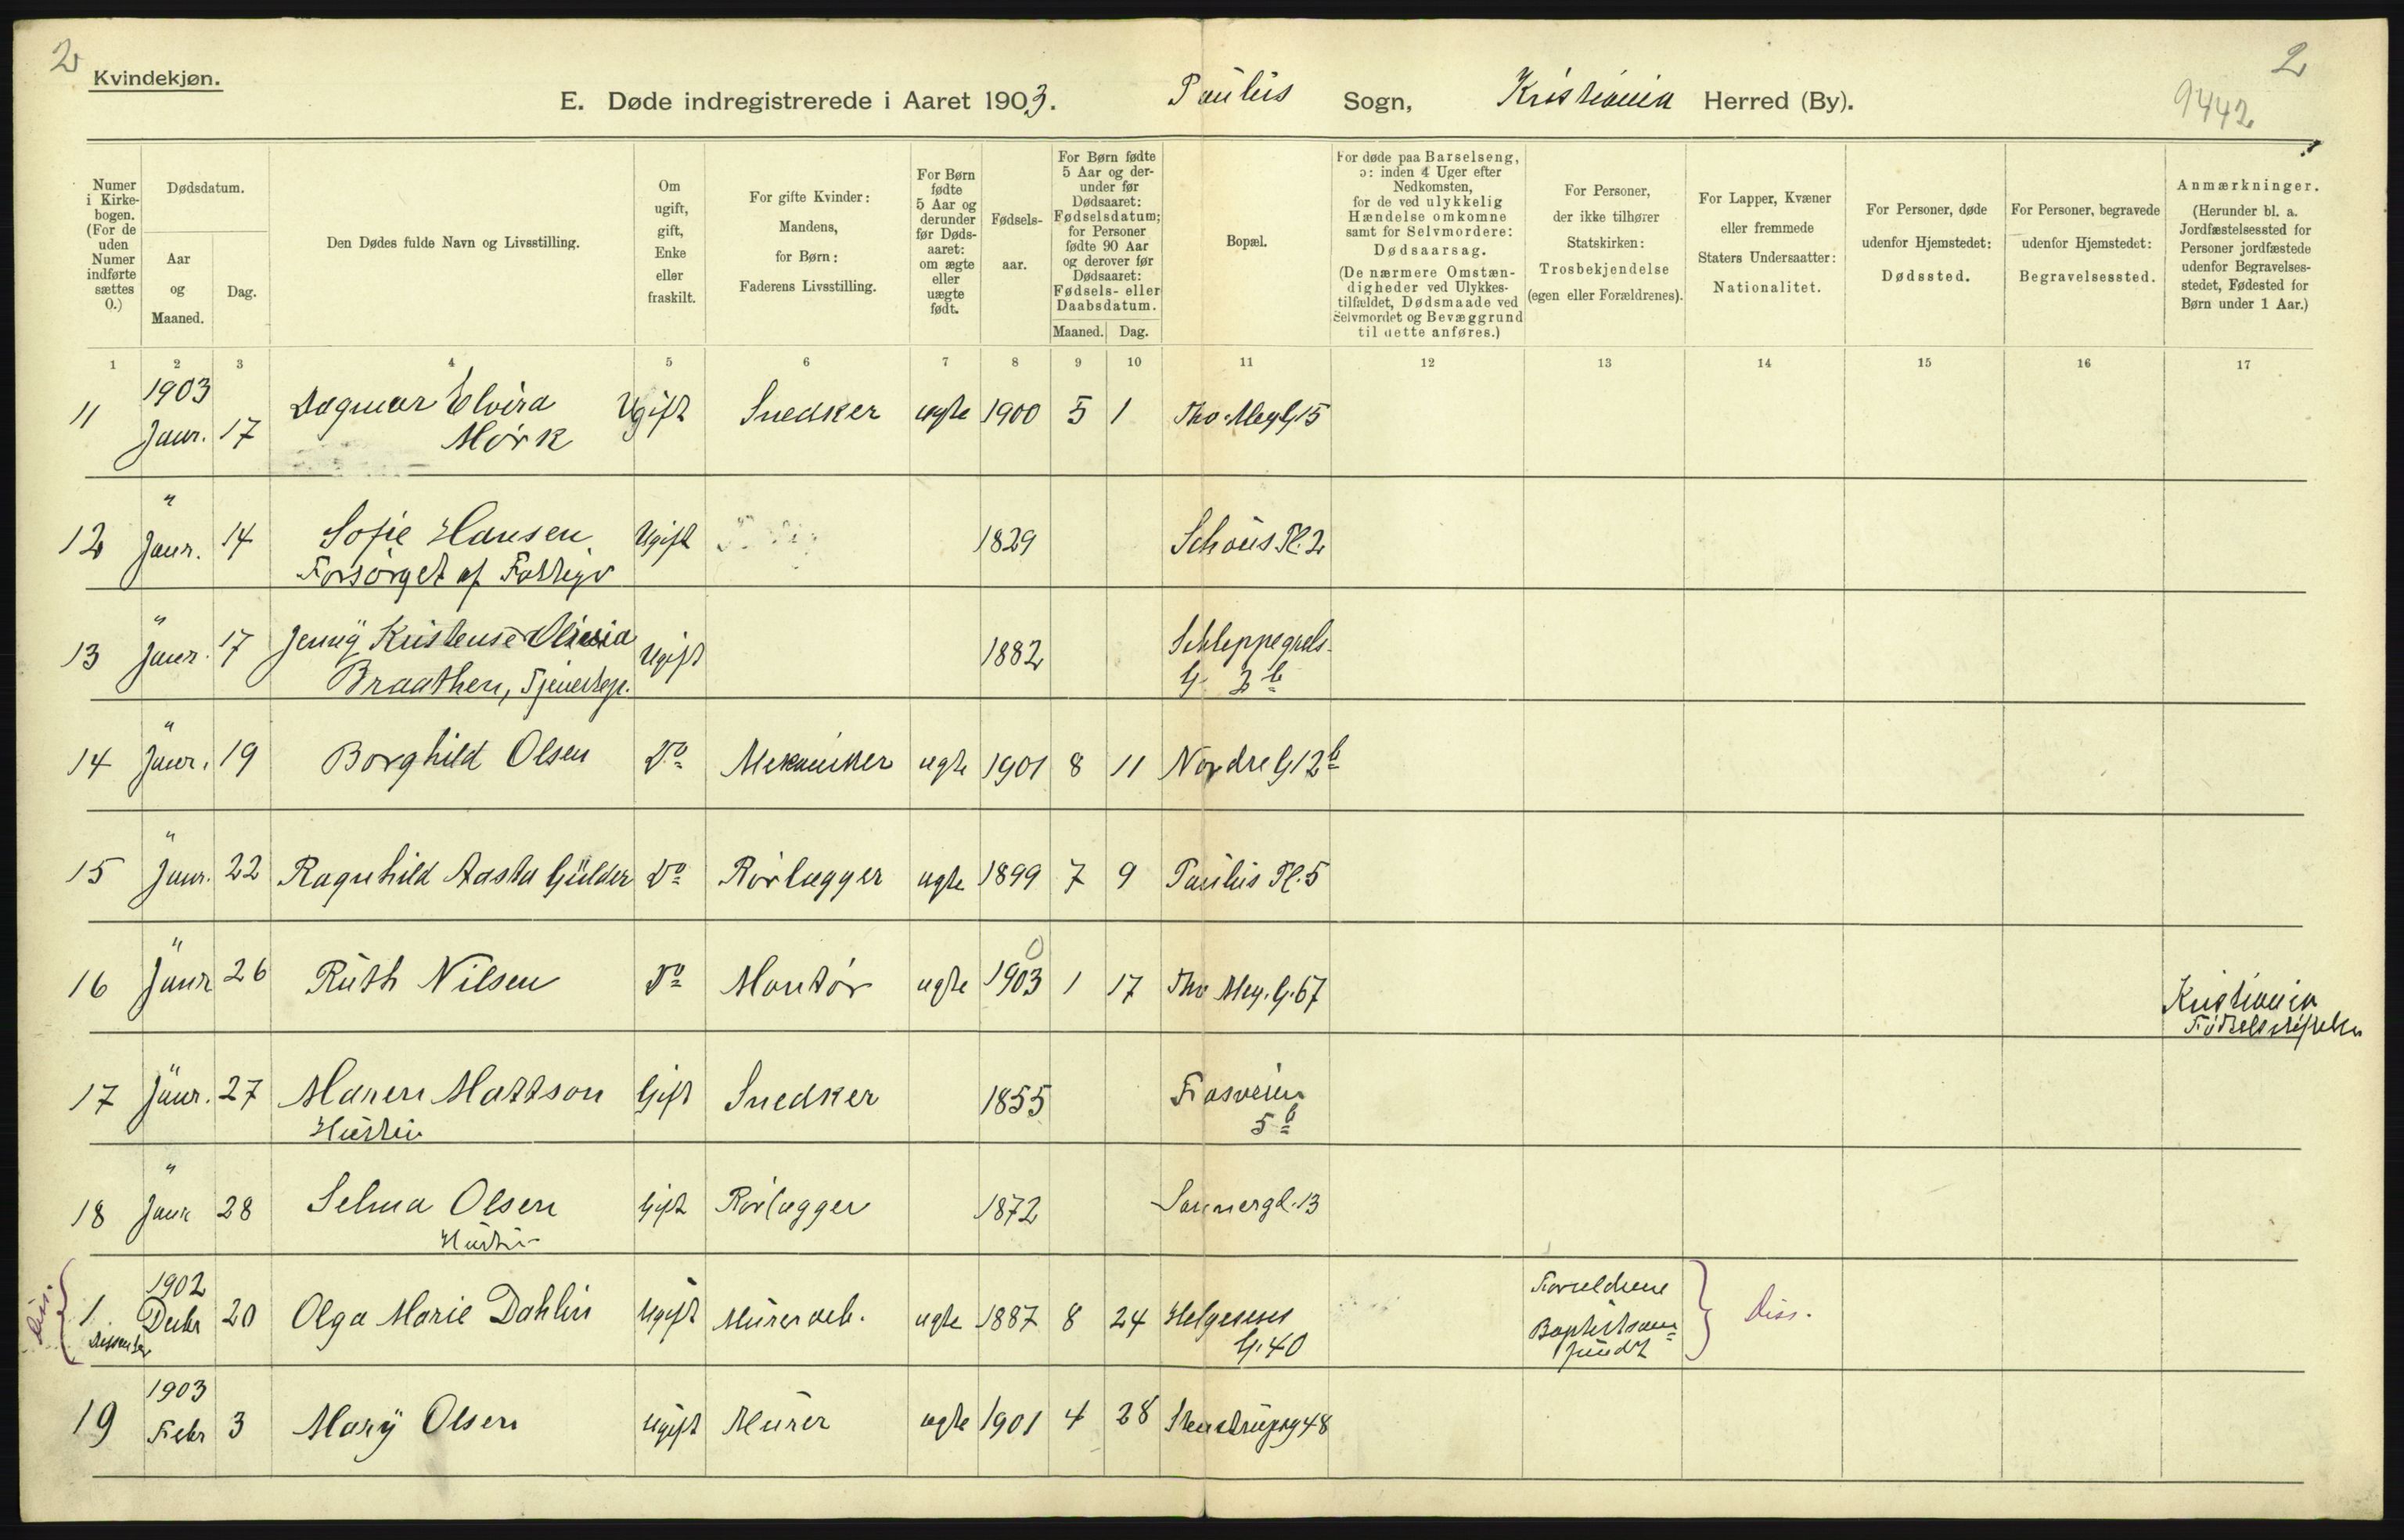 2
Kvindekjøn.
2
E. Døde indregistrerede i Aaret 1903. Paulus Sogn, Kristiania Herred (By).
9442
Numer i Kirkebogen. (For de uden Numer indførte sættes 0.)
Dødsdatum.
Aar og Maaned.
Dag.
Den Dødes fulde Navn og Livsstilling.
Om ugift, gift, Enke eller fraskilt.
For gifte Kvinder: Mandens, for Børn: Faderens Livsstilling.
For Børn fødte 5 Aar og derunder før Dødsaaret: om ægte eller uægte født.
Fødselsaar.
For Børn fødte 5 Aar og derunder før Dødsaaret: Fødselsdatum; for Personer fødte 90 Aar og derover før Dødsaaret: Fødsels- eller Daabsdatum.
Maaned. Dag.
Bopæl.
For døde paa Barselseng, ɔ: inden 4 Uger efter Nedkomsten, for de ved ulykkelig Hændelse omkomne samt for Selvmordere: Dødsaarsag. (De nærmere Omstændigheder ved Ulykkestilfældet, Dødsmaade ved Selvmordet og Bevæggrund til dette anføres.)
For Personer, der ikke tilhører Statskirken: Trosbekjendelse (egen eller Forældrenes).
For Lapper, Kvæner eller fremmede Staters Undersaatter: Nationalitet.
For Personer, døde udenfor Hjemstedet: Dødssted.
For Personer, begravede udenfor Hjemstedet: Begravelsessted.
Anmærkninger. (Herunder bl. a. Jordfæstelsessted for Personer jordfæstede udenfor Begravelsesstedet, Fødested for Børn under 1 Aar.)
1 2 3 4 5 6 7 8 9 10 11 12 13 14 15 16 17
11 1903 Janr. 17 Dagmar Elvira Mørk Ugift Snedker ægte 1900 5 1 Tho. Mey G 15
12 " Janr. 14 Sofie Hansen Ugift 1829 Schous Pl. 2
Forsørget af Fattigv
13 " Janr. 17 Jenny Kristense Olivia Ugift 1882 Schleppegrels
Braathen, Tjenestepe. G. 3 b
14 " Janr. 19 Borghild Olsen Do Mekaniker ægte 1901 8 11 Nordre G 12 b
15 " Janr. 22 Ragnhild Aasta Gulder Do Rørlægger ægte 1899 7 9 Paulus Pl. 5
16 " Janr 26 Ruth Nilsen Do Montør ægte 1903 1 17 Tho Mey. G. 67 Kristiania
Fødselsstiftelse
17 " Janr. 27 Maren Mattson Gift Snedker 1855 Fiasveien
Hustru 5 b
18 " Janr 28 Selma Olsen Gift Rørlægger 1872 Sannergd. 13
Hustru
Diss. 1 Dissenter 1902 Decbr 20 Olga Marie Dahlin Ugift Murerarb. ægte 1887 8 24 Helgesens G. 40 Forældrene Baptistsamfundt Diss.
19 1903 Febr 3 Mary Olsen Ugift Murer ægte 1901 4 28 Stenstrupsg 48